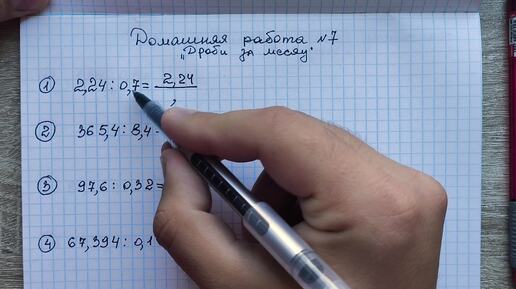 Домашняя работа №7
"Дроби за месяц"
① 2,24 : 0,7 = 2,24
,
② 365,4 : 8,4
③ 97,6 : 0,32 =
④ 67,394 : 0,1